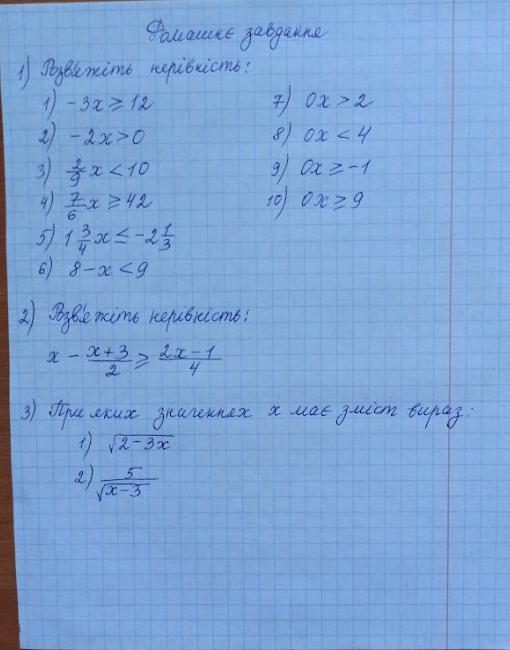 Домашнє завдання
1) Розв'яжіть нерівність:
1) -3x ≥ 12
2) -2x > 0
3) 2/9 x < 10
4) 7/6 x ≥ 42
5) 1 3/4 x ≤ -2 1/3
6) 8 - x < 9
7) 0x > 2
8) 0x < 4
9) 0x ≥ -1
10) 0x ≥ 9
2) Розв'яжіть нерівність:
x - (x+3)/2 ≥ (2x-1)/4
3) При яких значеннях x має зміст вираз:
1) √(2-3x)
2) 5/√(x-3)